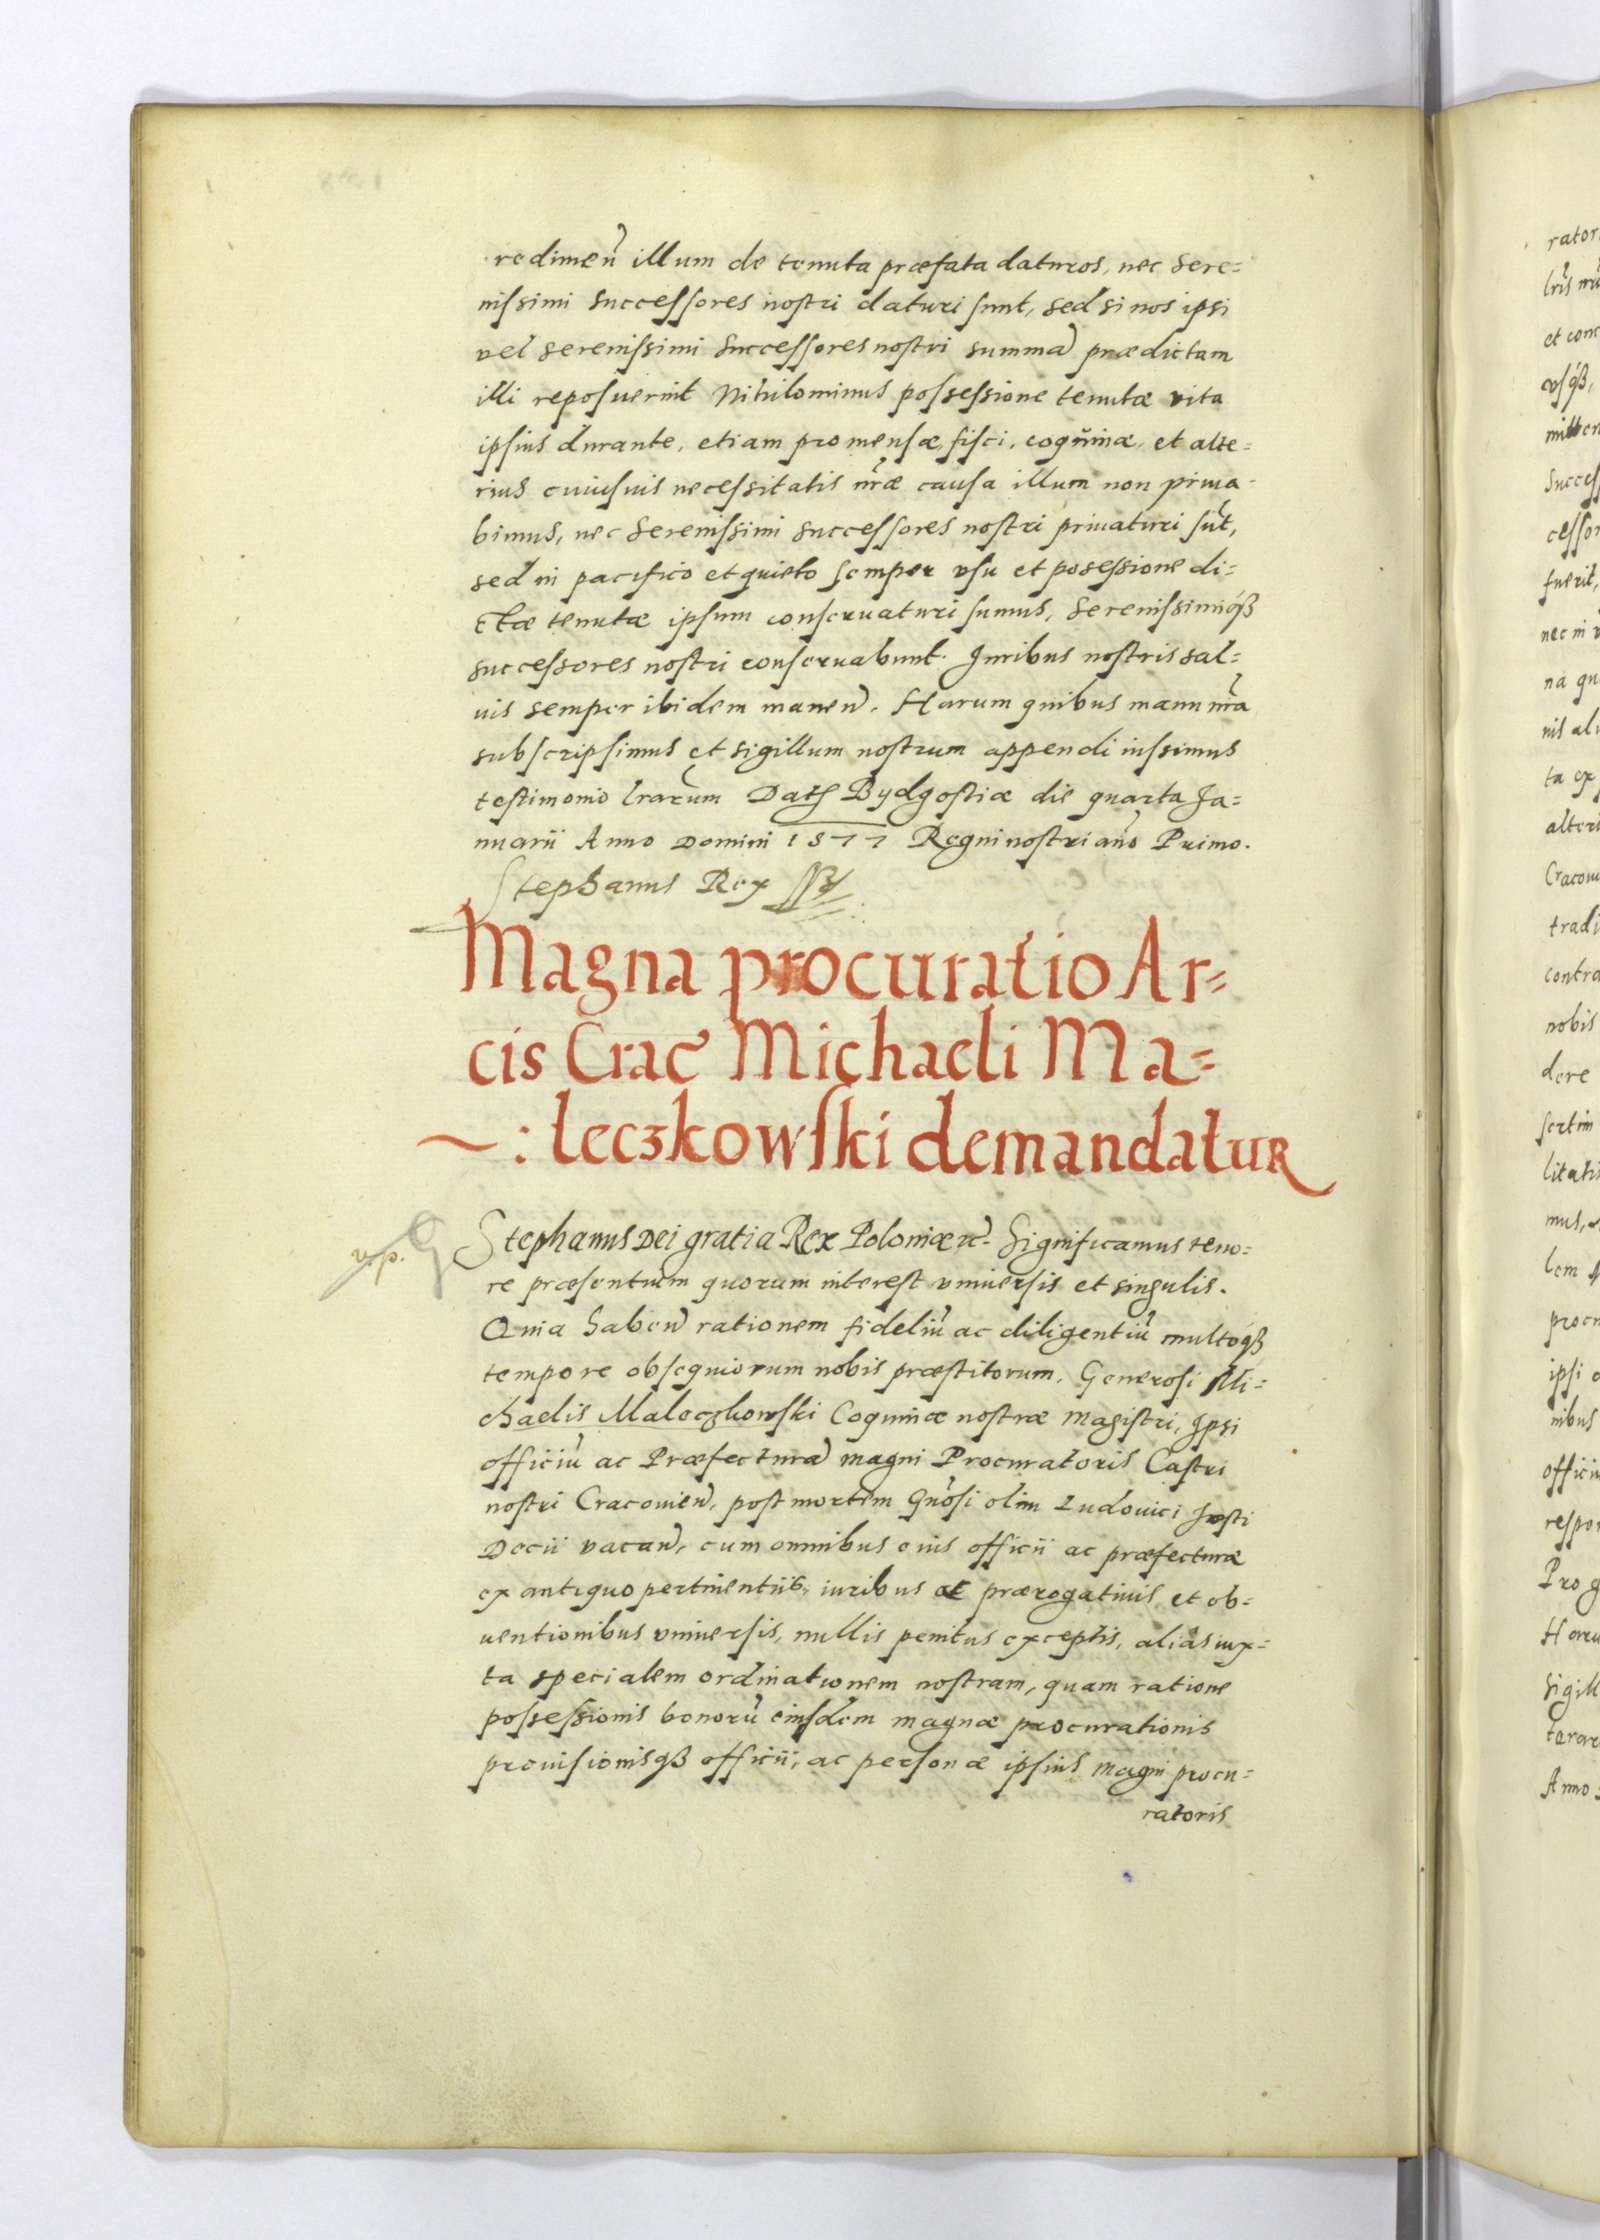 redimeñ illum de tenuta præfata daturos, nec Sere=
nissimi Successores nostri daturi sunt, sed si nos ipsi
vel Serenissimi Successores nostri summã prædictam
illi reposuerint Nihilominus possessione tenutæ vita
ipsius durante, etiam pro mensæ, fisci, coquinæ, et alte=
rius cuiusuis necessitatis nr̃æ causa illum non priua=
bimus, nec Serenissimi successores nostri priuaturi sũt,
sed in pacifico et quieto semper vsu et posessione di=
ctæ tenutæ ipsum conseruaturi sumus, Serenissimiqȝ
successores nostri conseruabunt. Iuribus nostris sal=
uis semper ibidem maneñ. Harum quibus manu nr̃a
subscripsimus et sigillum nostrum appendi iussimus
testimonio lr̃arum Datȝ Bydgostiæ die quarta Ja=
nuarii Anno Domini 1577 Regni nostri año Primo.
Stephanus Rex
Magna procuratio Ar=
cis Crac̃ Michaeli Ma=
leczkowski demandatur
v. p.
Stephanus Dei gratia Rex Poloniæ ꝛc. Significamus teno=
re præsentium quorum interest vniuersis et singulis.
Quia habeñ rationem fideliũ ac diligentiũ multoqȝ
tempore obsequiorum nobis præstitorum, Generosi Mi=
chaelis Maleczkowski Coquinæ nostræ Magistri, Ipsi
officiũ ac Præfecturã magni Procuratoris Castri
nostri Cracouieñ, post mortem Gñosi olim Ludouici Josti
Decii vacañ, cum omnibus eius officii ac præfecturæ
ex antiquo pertinentiis, iuribus ac prærogatiuis, et ob=
uentionibus vniuersis, nullis penitus exceptis, alias iux=
ta specialem ordinationem nostram, quam ratione
possessionis bonorũ eiusdem magnæ procurationis
prouisionisqȝ officii, ac personæ ipsius Magni procu=
ratoris